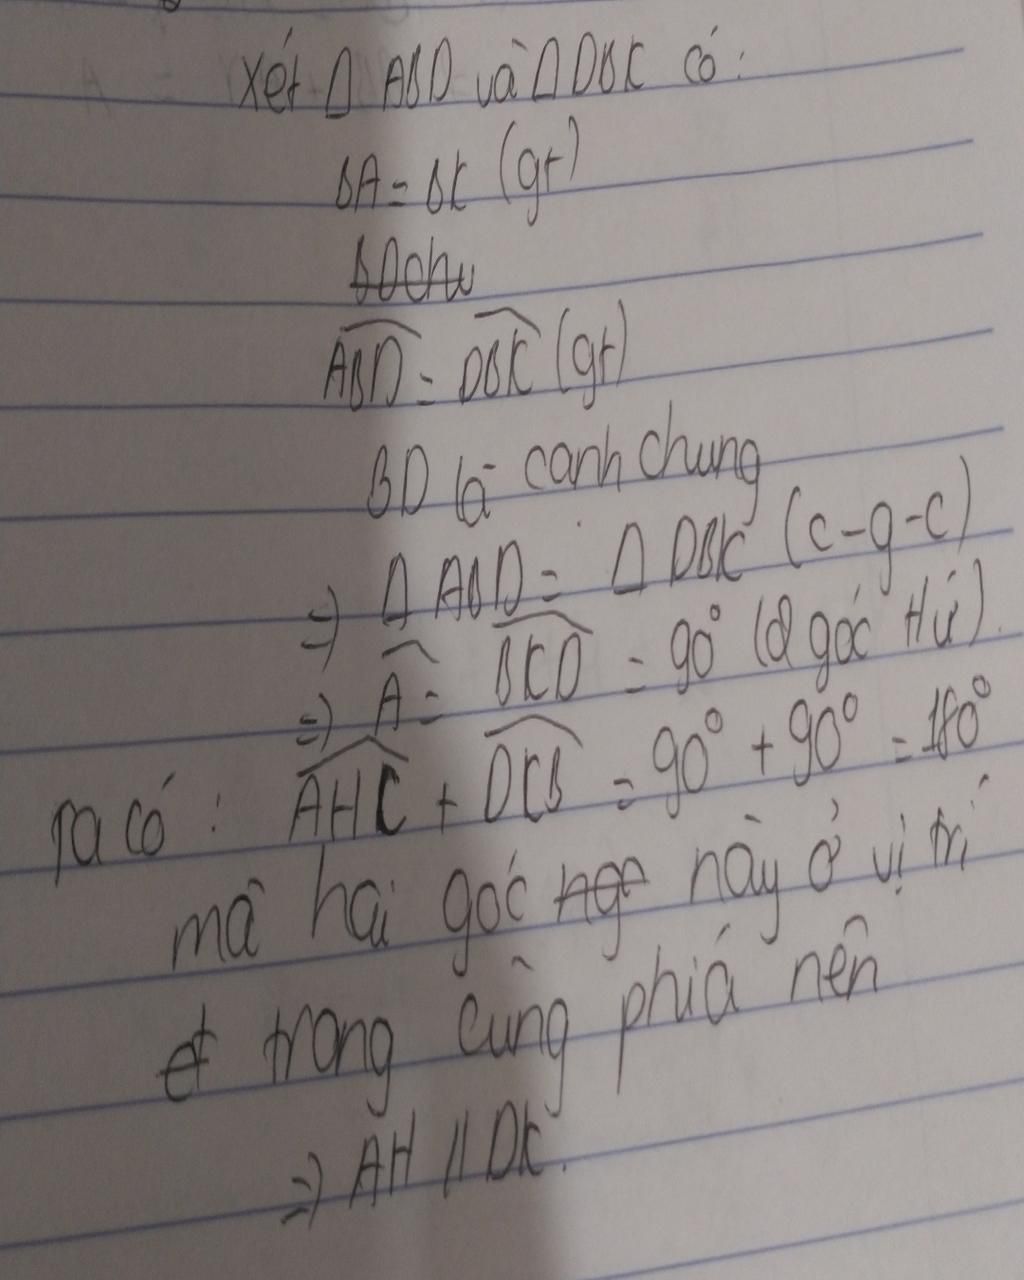 Xét Δ ABD và Δ DBK có:
BA = BK (gt)
BD chu
ABD = DBK (gt)
BD là cạnh chung
=) Δ ABD = Δ DBK (c-g-c)
=) A = BKD = 90° (2 góc tứ).
Ta có: AHC + DKB = 90° + 90° = 180°
mà hai góc ngo này ở vị trí
trong cùng phía nên
=) AH // DK.